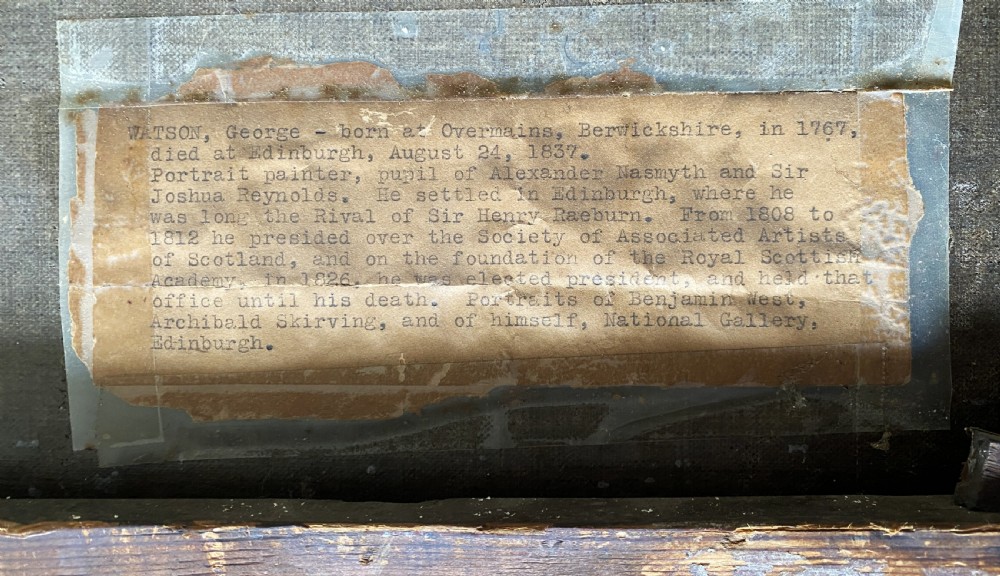 WATSON, George - born at Overmains, Berwickshire, in 1767,
died at Edinburgh, August 24, 1837.
Portrait painter, pupil of Alexander Nasmyth and Sir
Joshua Reynolds. He settled in Edinburgh, where he
was long the Rival of Sir Henry Raeburn. From 1808 to
1812 he presided over the Society of Associated Artists
of Scotland, and on the foundation of the Royal Scottish
Academy, in 1826, he was elected president, and held that
office until his death. Portraits of Benjamin West,
Archibald Skirving, and of himself, National Gallery,
Edinburgh.